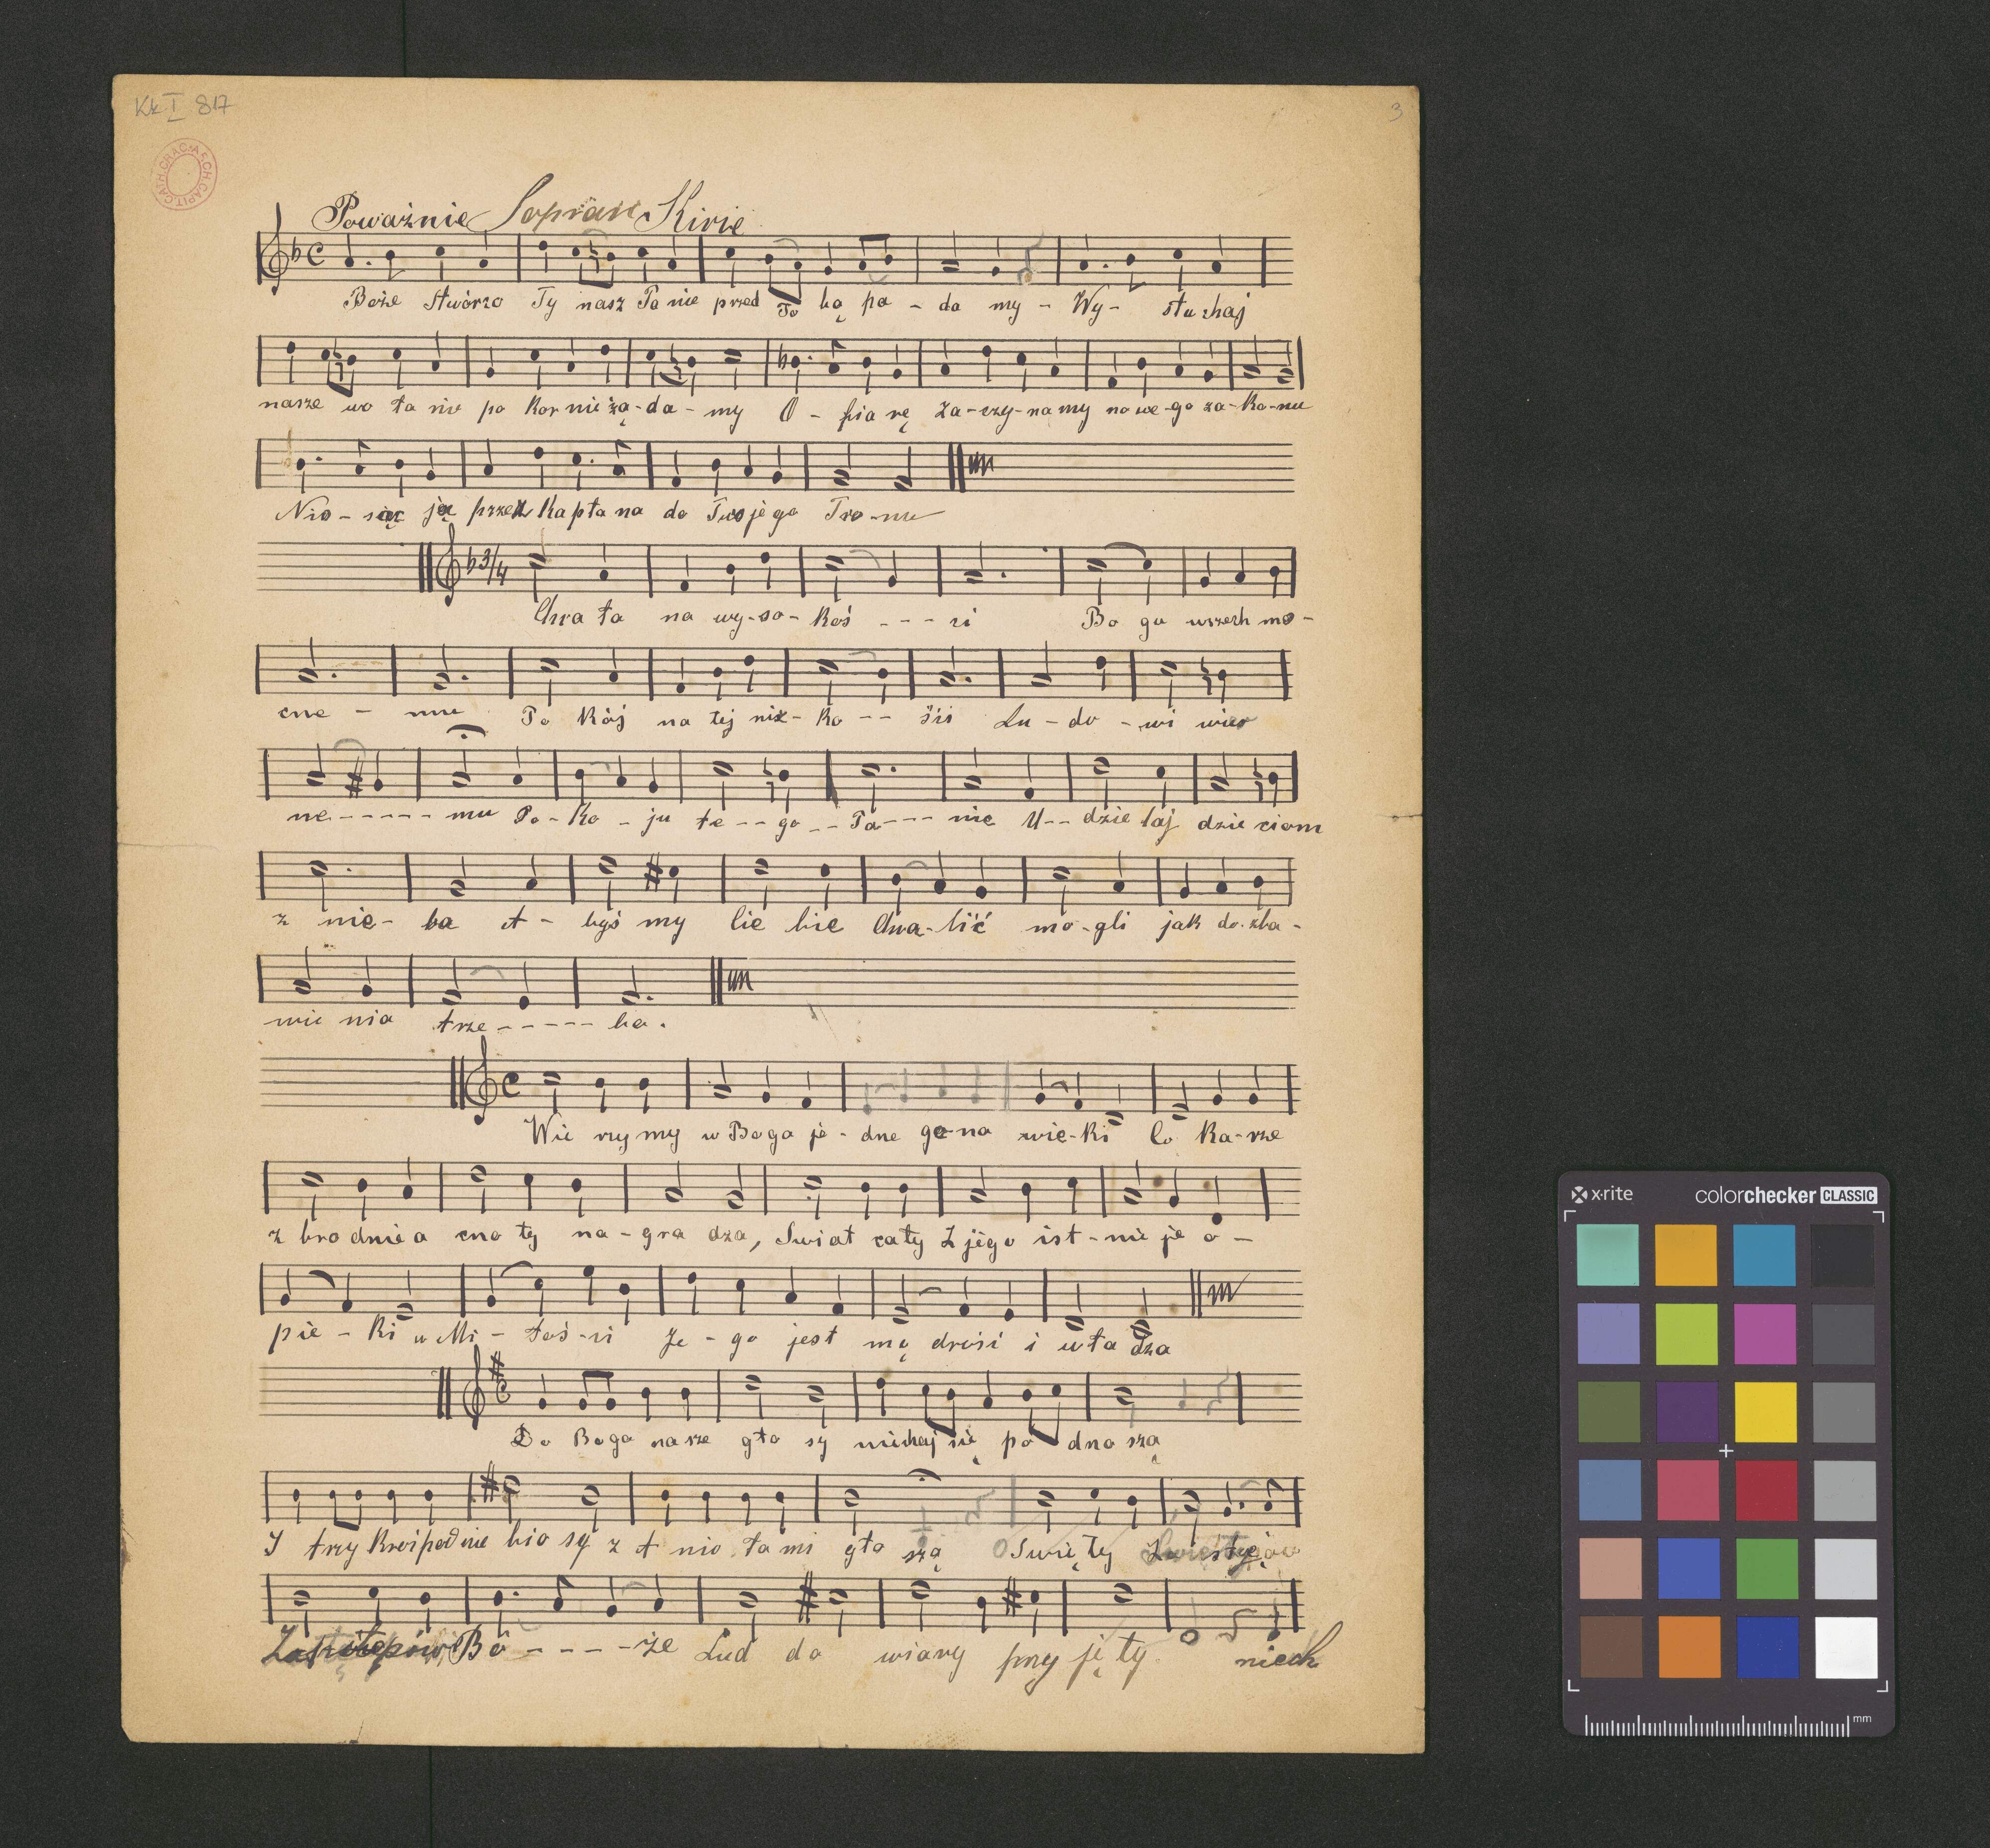 Kk I 817
3
ARCH. CAPIT. CATH. CRAC.
Poważnie Sopran Kirie
Boże Stwórzo Ty nasz Pa nie przed To bą pa - da my - Wy - słu chaj
nasze wo ła nie po kor nie żą - da - my O - fia rę Za - czy - na my no we - go za - ko - nu
Nio - sąc ją przez Ka pła na do Two je go Tro - nu
b3/4
Chwa ła na wy - so - koś - - - ci Bo gu wszech mo -
cne - mu Po kój na tej niz - ko - - ści Lu - do - wi wier
ne - - - - - mu Po - ko - ju te - - go - - Pa - - - nie U - - dzie laj dzie ciom
z nie - ba A - byś my Cie bie Chwa - lić mo - gli jak do. zba -
wie nia trze - - - - - ba.
Wie rzy my w Boga je - dne go - na wie - ki Co Ka - rze
z bro dnie a cno ty na - gra dza, Swiat cały Z jego ist - nie je o -
pie - ki w Mi - łoś - ci Je - go jest mą drość i wła dza
Do Boga na sze gło sy niechaj się po dno szą
I trzy kroć pod nie bio sy z A nio ła mi gło szą O Swię ty
Zastępów Bo - - - - że Lud do wiary przy ję ty niech
x·rite
colorchecker CLASSIC
mm